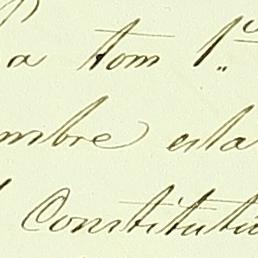 a tom 1.º
mbre esta
Constituti